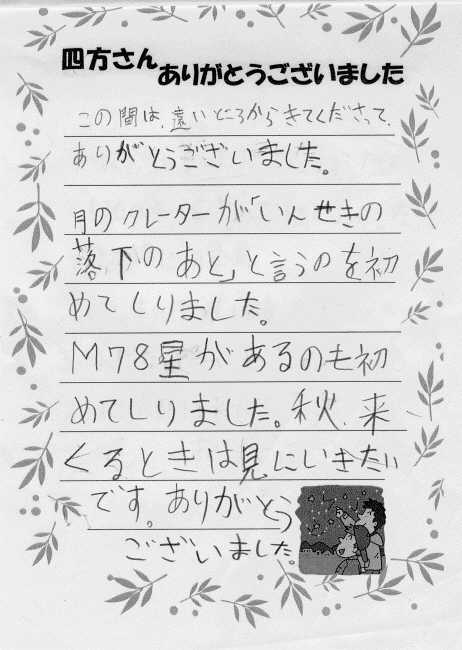 四方さん
ありがとうございました
この間は、遠いところからきてくださって、
ありがとうございました。
月のクレーターが「いんせきの
落下のあと」と言うのを初
めてしりました。
M78星があるのも初
めてしりました。秋、来
くるときは見にいきたい
です。ありがとう
ございました。